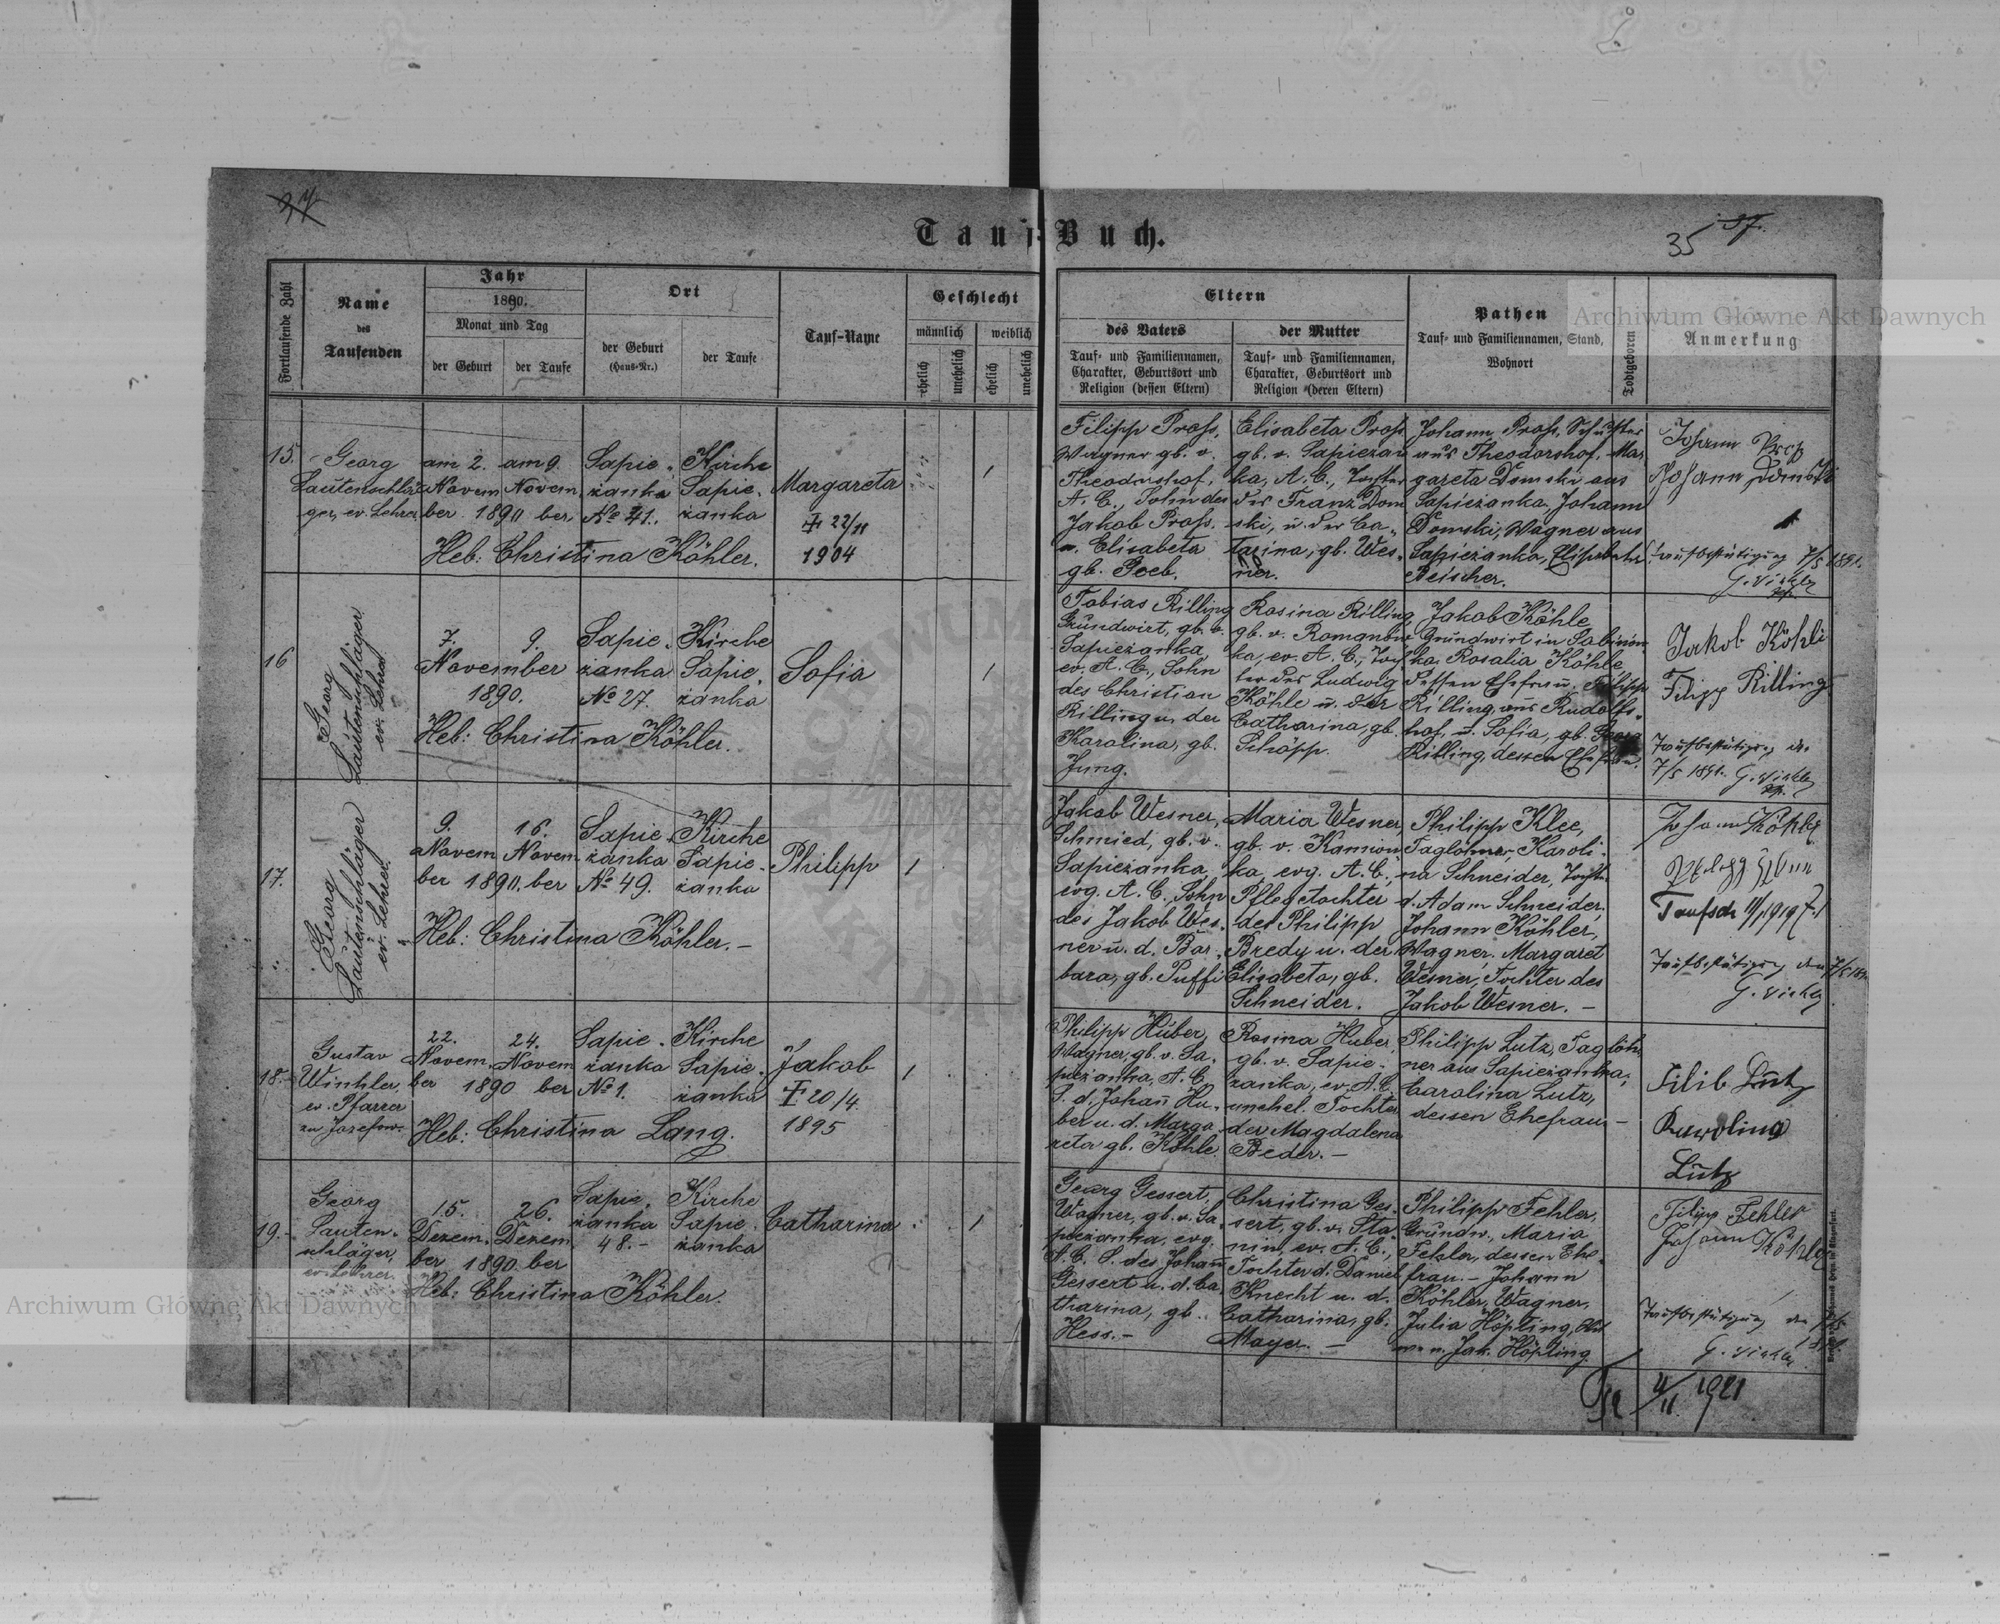 Tauf-Buch.
35
37.
Fortlaufende Zahl
Name
des
Taufenden
Jahr
1890.
Monat und Tag
der Geburt
der Taufe
Ort
der Geburt
(Haus-Nr.)
der Taufe
Tauf-Name
Geschlecht
männlich
weiblich
ehelich
unehelich
ehelich
unehelich
Eltern
des Vaters
Tauf- und Familiennamen,
Charakter, Geburtsort und
Religion (dessen Eltern)
der Mutter
Tauf- und Familiennamen,
Charakter, Geburtsort und
Religion (deren Eltern)
Pathen
Tauf- und Familiennamen, Stand,
Wohnort
Todtgeboren
Anmerkung
Archiwum Główne Akt Dawnych
15.
Georg
Lautenschlä-
ger, ev. Lehrer
am 2.
Novem
ber 1890
am 9.
Novem
ber
Heb: Christina Köhler.
Sapie-
żanka
No 41.
Kirche
Sapie-
żanka
Margareta
‡ 22/11
1904
1
Filipp Pross,
Wagner gb. v.
Theodorshof,
A. C., Sohn des
Jakob Pross.
u. Elisabeta
gb. Poeb.
Elisabeta Pross
gb. v. Sapiezan
ka, A. C., Tochter
des Franz Dom
ski, u. der Ca-
tarina, gb. Wes-
ner.
Johann Pross, Schuster
aus Theodorshof, Mar
gareta Domski aus
Sapiezanka, Johann
Domski, Wagner aus
Sapiezanka, Elisabeta
Beischer.
Johann Pross
Johann Domski
Taufbestätigung 7/5 1891.
16
Georg
Lautenschläger
ev. Lehrer
7. 9.
November
1890.
Heb: Christina Köhler.
Sapie-
żanka
No 27.
Kirche
Sapie-
żanka
Sofia
1
Tobias Rilling
Grundwirt, gb. v.
Sapiezanka,
ev. A. C., Sohn
des Christian
Rilling u. der
Karolina, gb.
Jung.
Rosina Rilling,
gb. v. Romanow
ka, ev. A. C., Toch
ter des Ludwig
Köhle u. der
Catharina, gb.
Schöpp.
Jakob Köhle
Grundwirt in Sabinów
ka, Rosalia Köhle,
dessen Ehefrau, Filipp
Rilling aus Rudolfs-
hof, u. Sofia, gb.
Rilling, dessen Ehefrau.
Jakob Köhli
Filipp Rilling
Taufbestätigung
7/5 1891.
17.
Georg
Lautenschläger
ev. Lehrer.
9.
Novem
ber 1890.
16.
Novem
ber
Heb: Christina Köhler. –
Sapie-
żanka
No 49.
Kirche
Sapie-
żanka
Philipp
1
Jakob Wesner,
Schmied, gb. v.
Sapiezanka,
evg. A. C. Sohn
des Jakob Wes-
ner u. d. Bar-
bara, gb. Puffi
Maria Wesner,
gb. v. Kamion
ka, evg. A. C.,
Pflegetochter
des Philipp
Bredy u. der
Elisabeta, gb.
Schneider.
Philipp Klee,
Taglöhner, Karoli-
na Schneider, Tocht.
d. Adam Schneider.
Johann Köhler,
Wagner. Margaret
Wesner, Tochter des
Jakob Wesner. –
Johann Köhler
Taufbestätigung
18.
Gustav
Winkler,
ev. Pfarrer
zu Josefow.
22.
Novem
ber 1890
24.
Novem
ber
Heb: Christina Lang.
Sapie-
żanka
No 1.
Kirche
Sapie-
żanka
Jakob
‡ 20/4
1895
1
Philipp Huber,
Wagner, gb. v. Sa-
piezanka, A. C.
S. d. Johann Hu-
ber u. d. Marga-
reta gb. Köhle.
Rosina Huber
gb. v. Sapie-
zanka, ev. A. C.
unehel. Tochter
der Magdalena
Beder. –
Philipp Lutz, Taglöh-
ner aus Sapiezanka,
Carolina Lutz,
dessen Ehefrau –
Filib Lutz
Karolina
Lutz
19.
Georg
Lauten-
schläger,
ev. Lehrer.
15.
Dezem-
ber 1890
26.
Dezem
ber
Heb: Christina Köhler.
Sapie-
żanka
48. –
Kirche
Sapie-
żanka
Catharina
1
Georg Gessert,
Wagner, gb. v. Sa-
piezanka, evg.
A. C. S. des Johann
Gessert u. d. Ca-
tharina, gb.
Hess. –
Christina Ges-
sert, gb. v. Sta-
nin, ev. A. C.,
Tochter d. Daniel
Knecht u. d.
Catharina, gb.
Mayer. –
Philipp Fehler,
Grundw., Maria
Fehler, dessen Ehe-
frau. – Johann
Köhler, Wagner,
Julia Höpling,
u. Jak. Höpling.
Filipp Fehler
Johann Köhler
Taufbestätigung
4/11 1921
Archiwum Główne Akt Dawnych